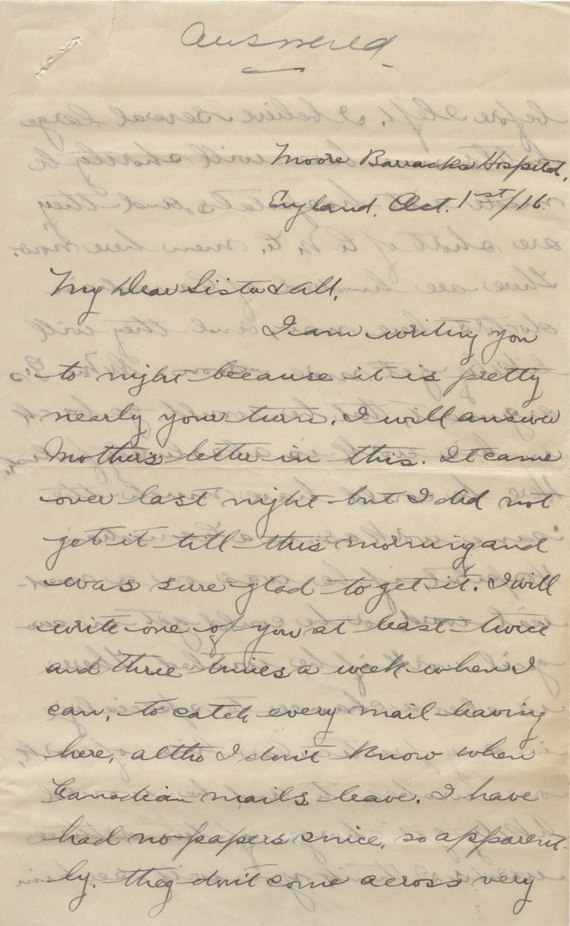 Answered.
Moore Barracks Hospital,
England, Oct. 1st/16.
My Dear Sister & all,
I am writing you
to night because it is pretty
nearly your turn. I will answer
Mother's letter in this. It came
over last night but I did not
get it till this morning and
was sure glad to get it. I will
write one of you at least twice
and three times a week when I
can, to catch every mail leaving
here, altho I don't know when
Canadian mails leave. I have
had no papers since, so apparent-
ly, they don't come across very